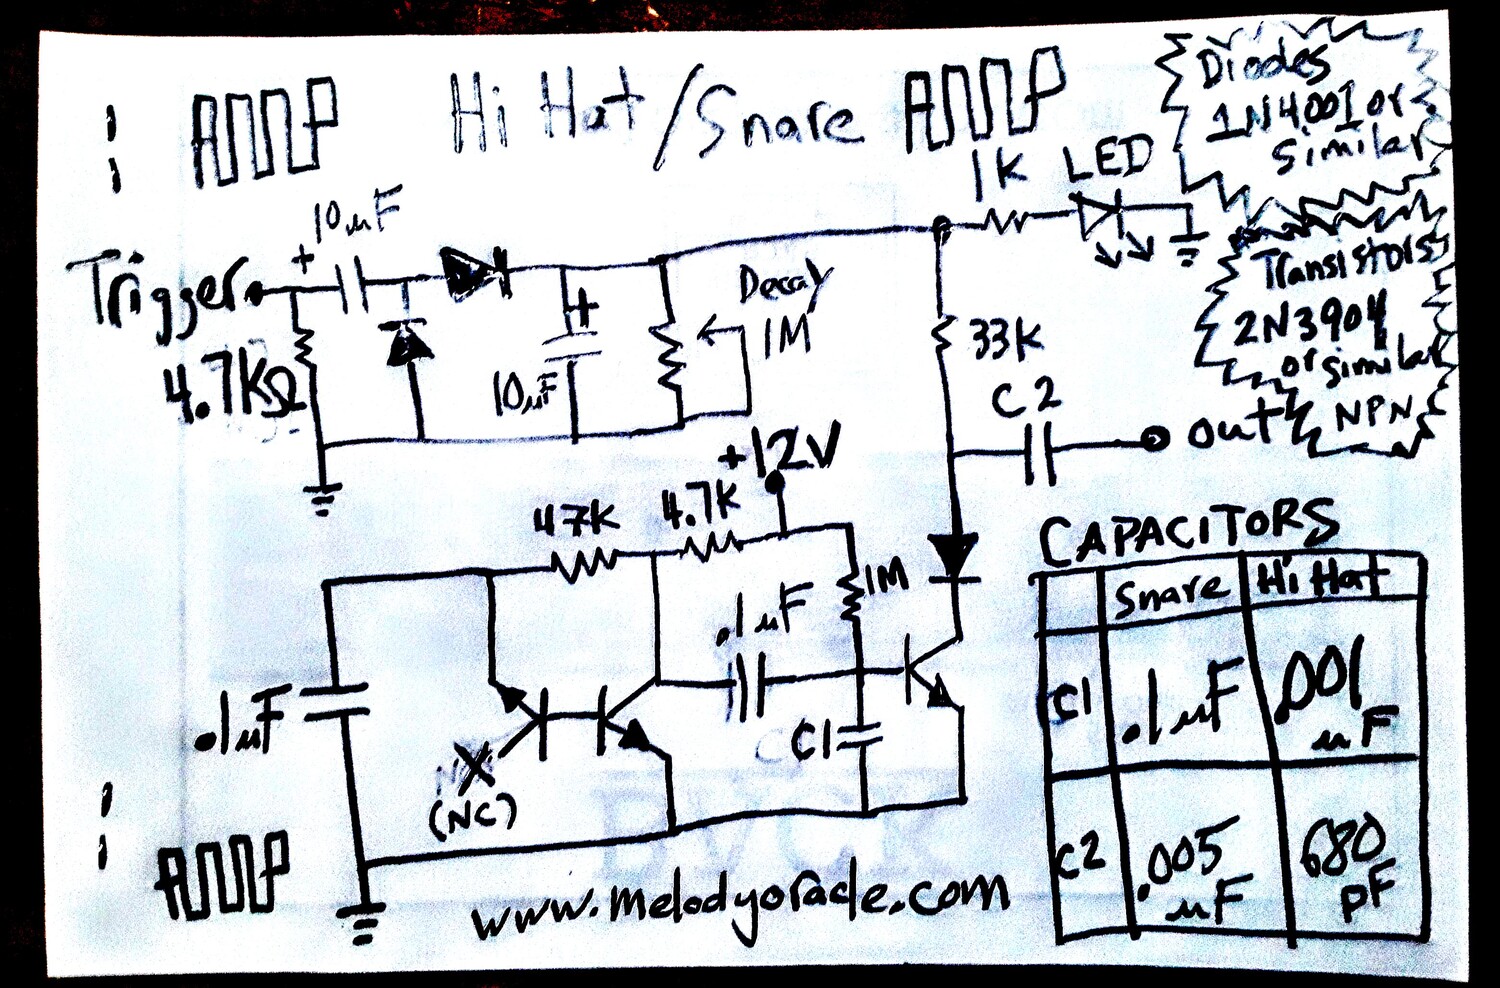 Hi Hat/Snare
Diodes
1N4001 or
Similar
1K LED
10uF
+
Trigger
4.7KΩ
+
10uF
Decay
1M
33K
Transistors
2N3904
or similar
NPN
C2
out
+12V
47K
4.7K
.1uF
1M
.1uF
C1
X
(NC)
CAPACITORS
Snare Hi Hat
C1 .1uF .001
uF
C2 .005
uF 680
pF
www.melodyoracle.com